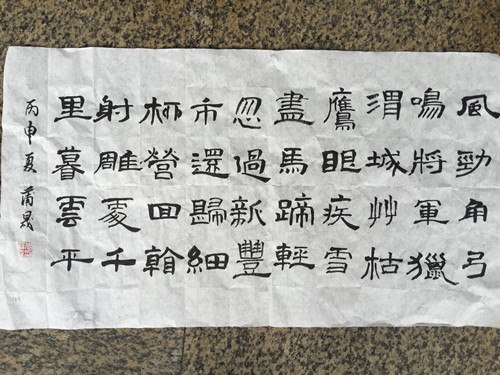 風勁角弓
鳴將軍獵
渭城艸枯
鷹眼疾雪
盡馬蹄輕
忽過新豐
市還歸細
柳營回看
射雕處千
里暮雲平
丙申夏